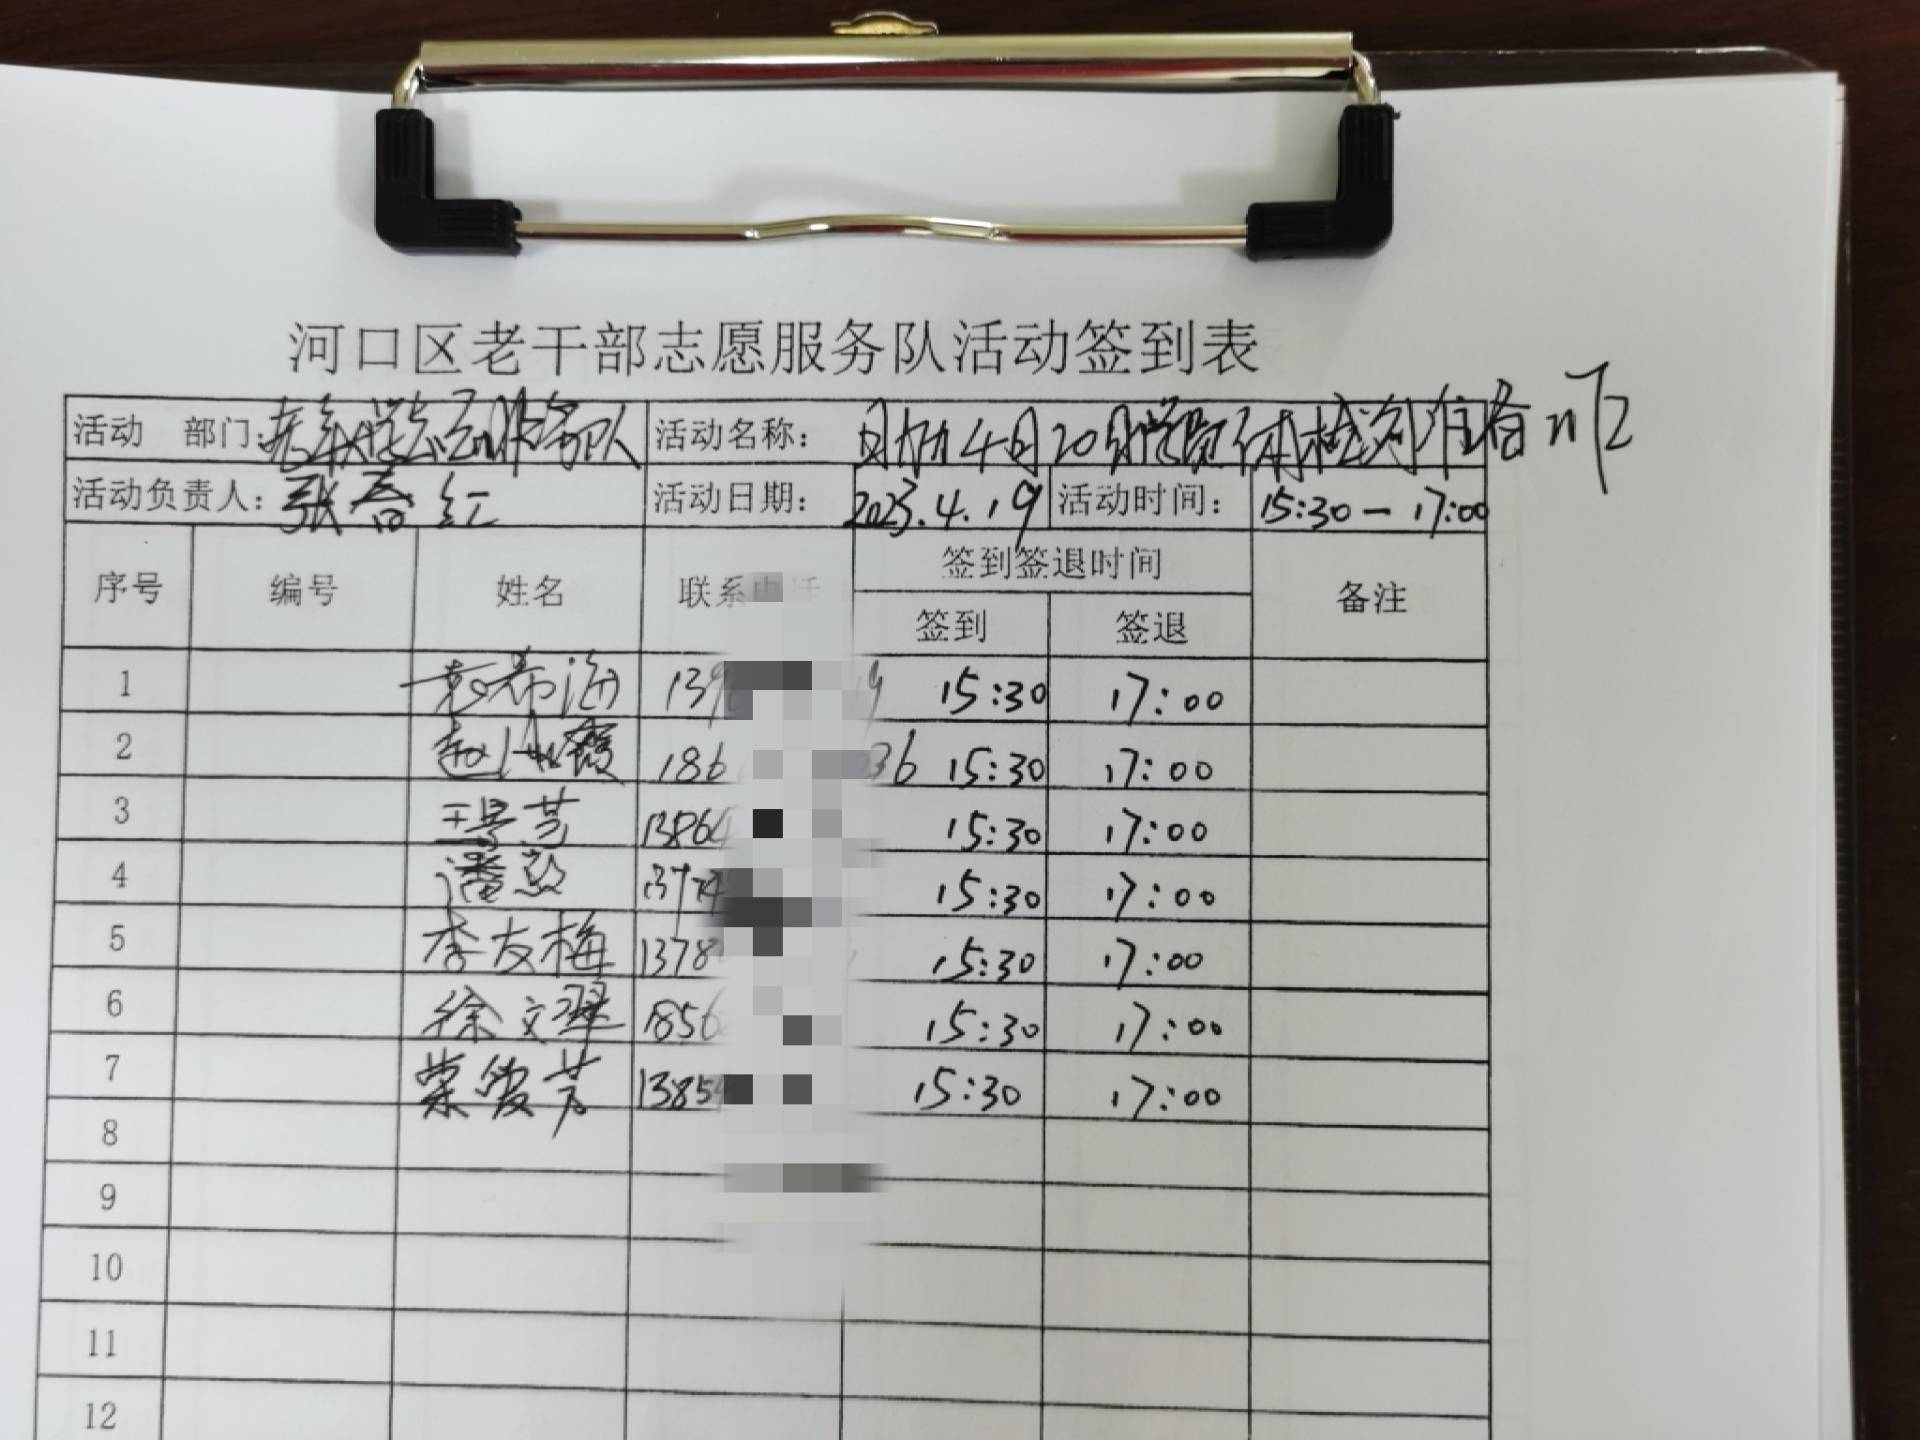 河口区老干部志愿服务队活动签到表
活动 部门: 老年大学志愿服务队 活动名称: 4月20日学员体检 准备
活动负责人: 张春红 活动日期: 2023.4.19 活动时间: 15:30-17:00
序号 编号 姓名 联系电话 签到签退时间 备注
签到 签退
1 袁希海 139 19 15:30 17:00
2 赵 霞 186 036 15:30 17:00
3 芝 13864 15:30 17:00
4 潘敏 1397 15:30 17:00
5 李友梅 1378 15:30 17:00
6 徐文翠 1856 15:30 17:00
7 荣俊芳 1385 15:30 17:00
8
9
10
11
12